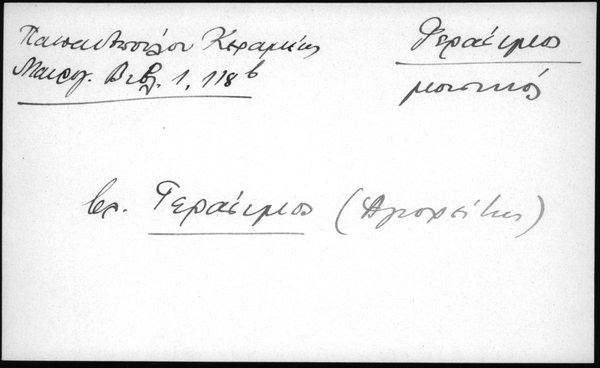 Παπαδοπούλου Κεραμέως
Μαυρογ. Βιβλ. 1, 118β
Γεράσιμος
μουσικός
βλ. Γεράσιμος (Αγιορείτης)